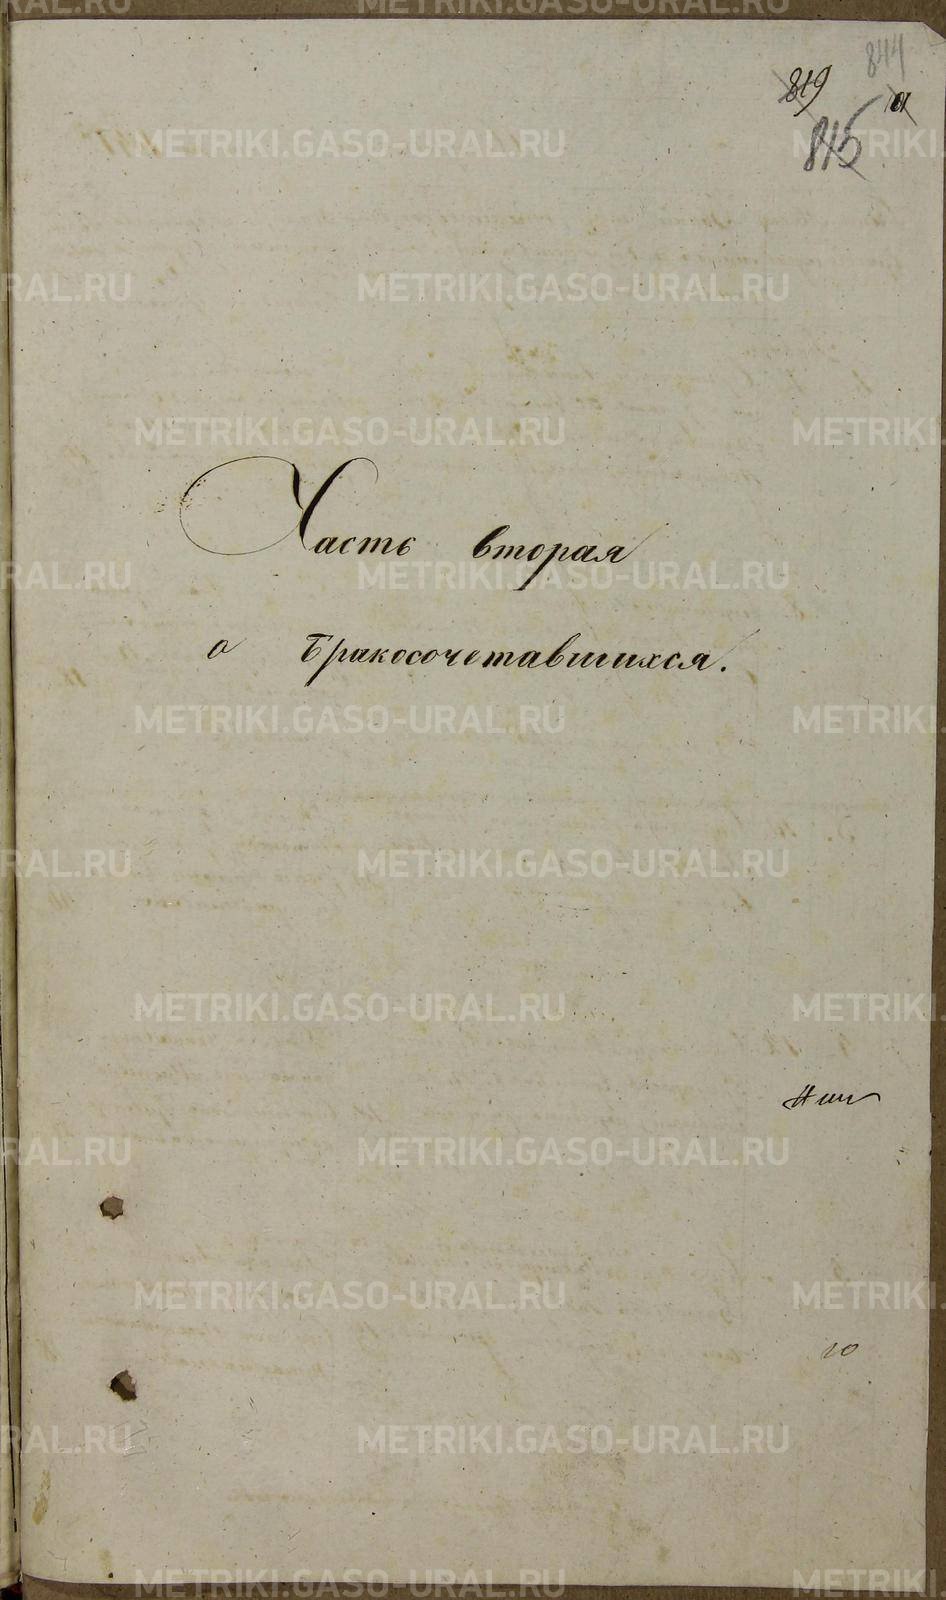 844
819
815
Часть вторая
о бракосочетавшихся.
10
METRIKI.GASO-URAL.RU